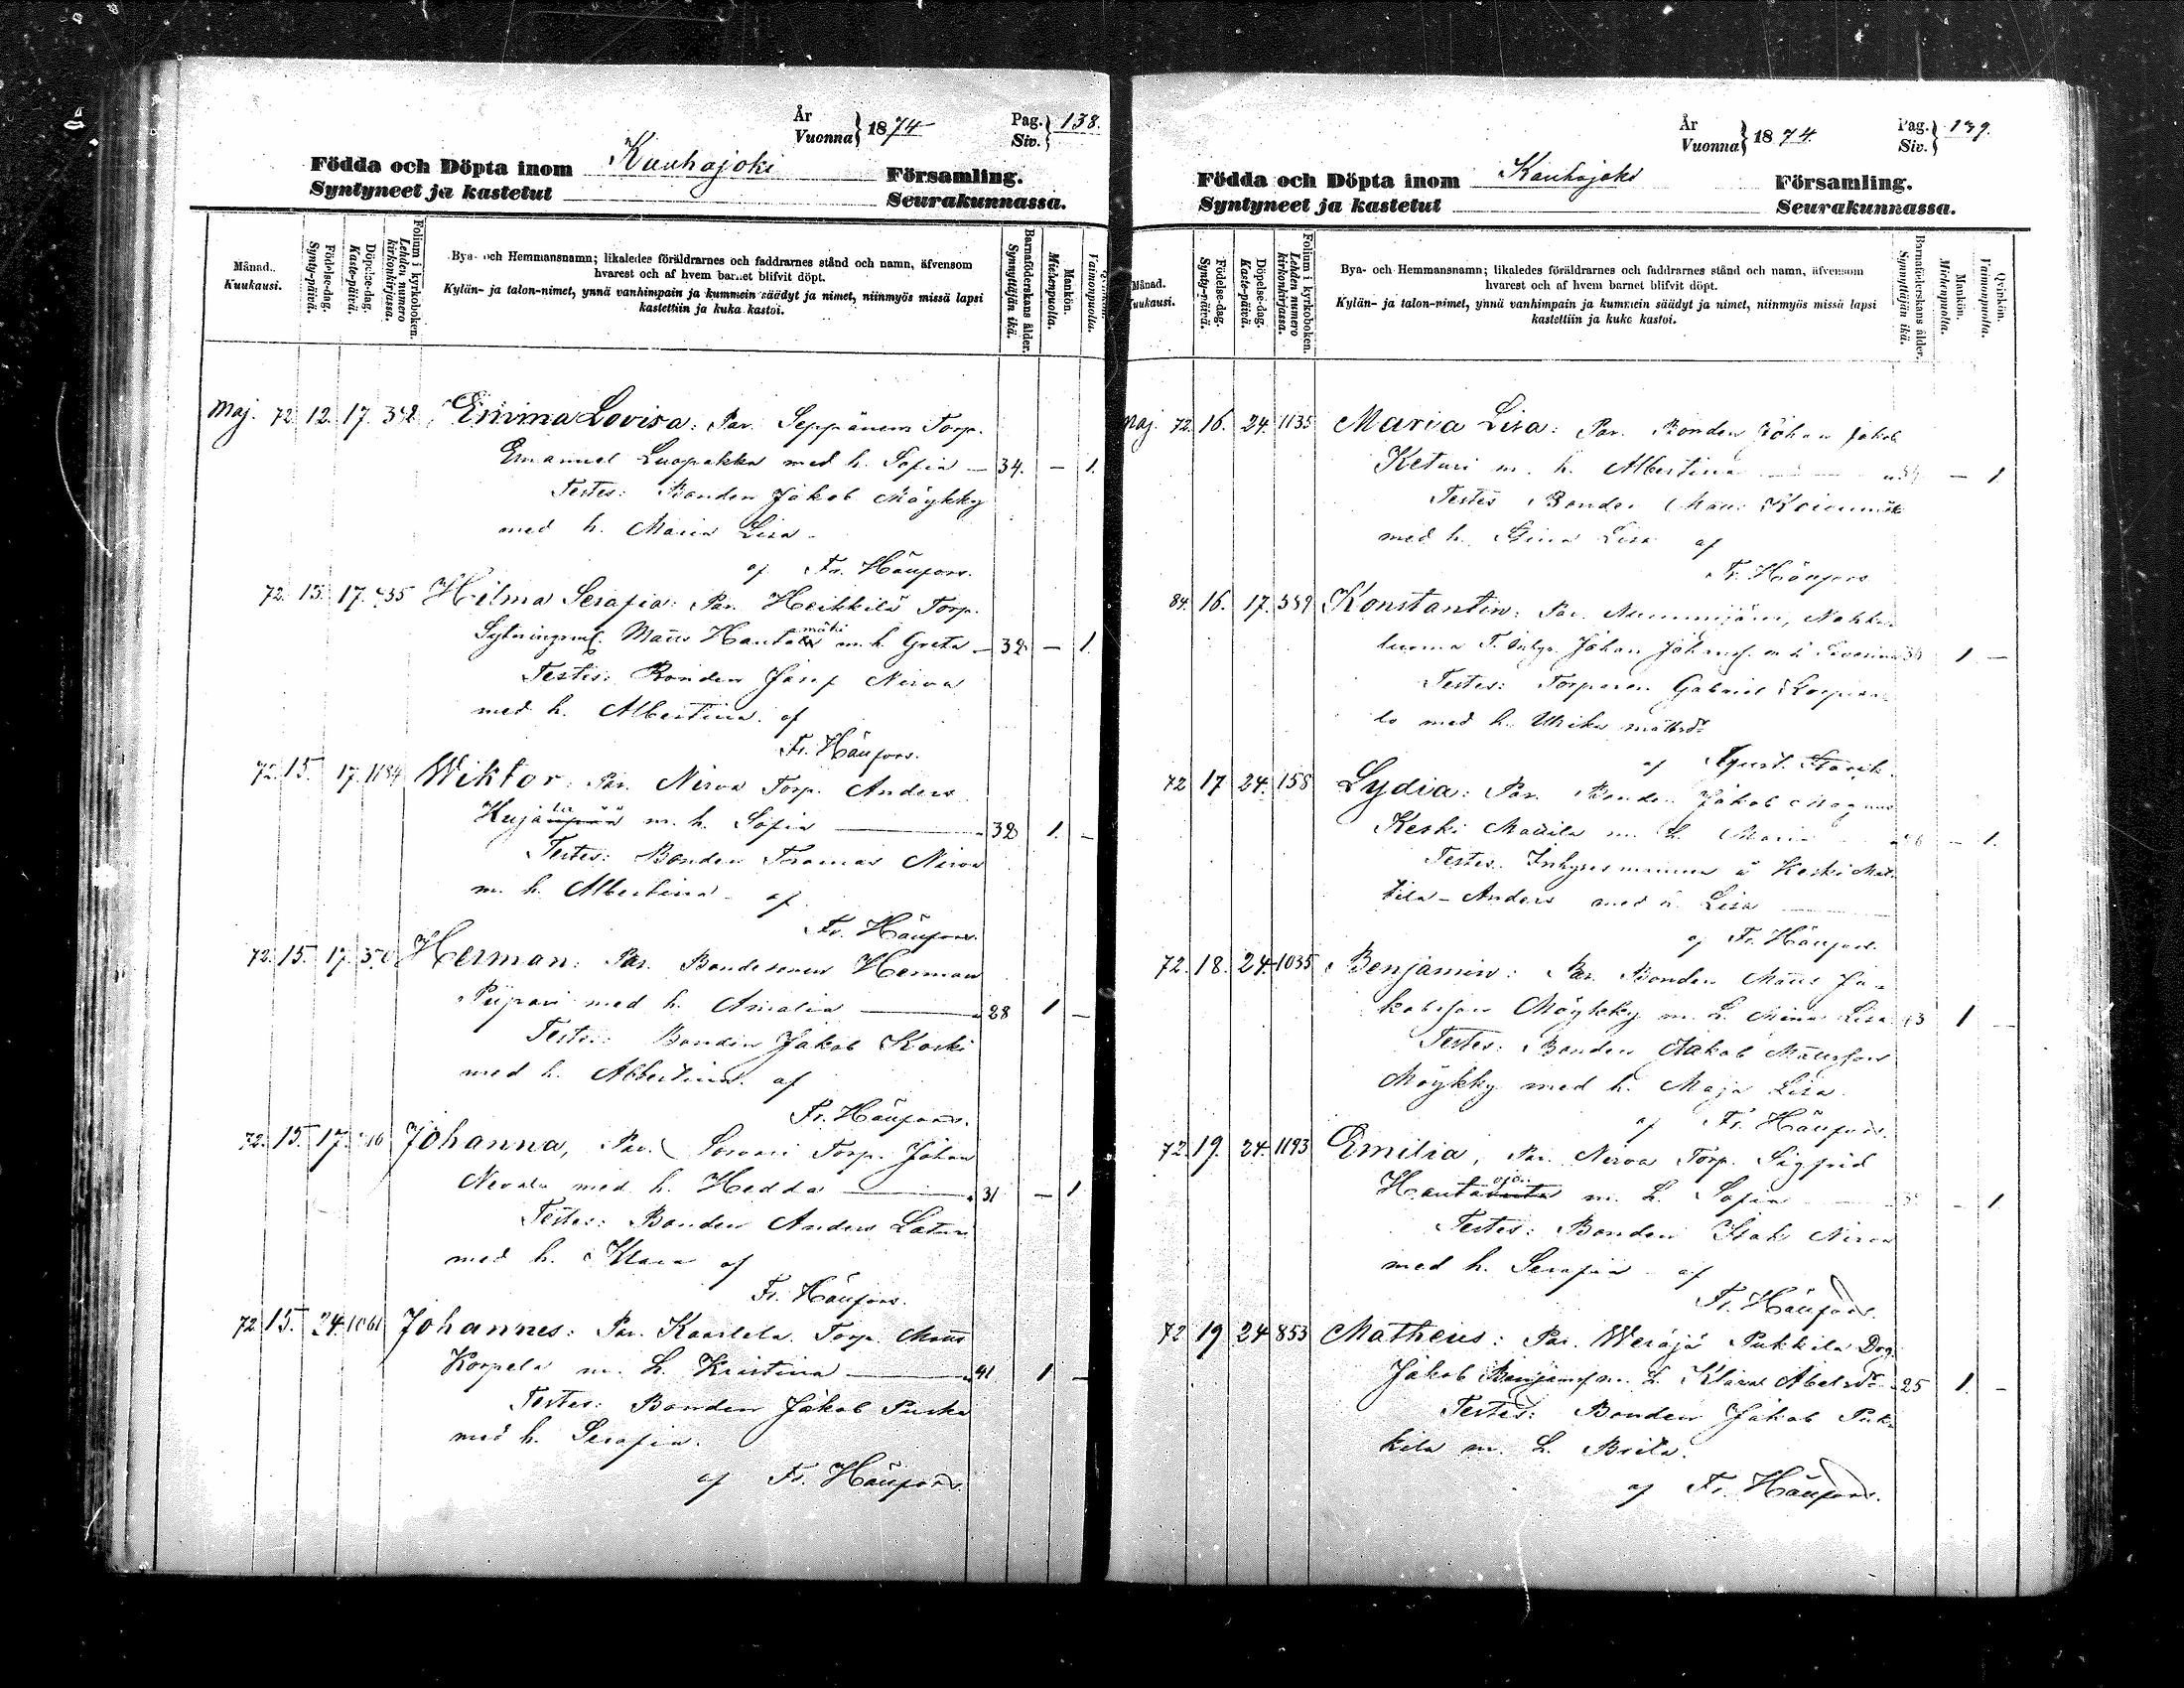 År
Vuonna} 1874
Pag.
Siv.} 138.
Födda och Döpta inom Kauhajoki Församling.
Syntyneet ja kastetut Seurakunnassa.
Månad.
Kuukausi.
Födelse-dag.
Synty-päivä.
Döpelse-dag.
Kaste-päivä.
Folium i kyrkoboken.
Lehden numero kirkonkirjassa.
Bya- och Hemmansnamn; likaledes föräldrarnes och faddrarnes stånd och namn, äfvensom
hvarest och af hvem barnet blifvit döpt.
Kylän- ja talon-nimet, ynnä vanhimpain ja kummein säädyt ja nimet, niinmyös missä lapsi
kastettiin ja kuka kastoi.
Barnaföderskans ålder.
Synnyttäjän ikä.
Mankön.
Miehenpuolta.
Vaimonpuolta.
Maj. 72. 12. 17. 342. Emma Lovisa: Par. Seppänens Torp.
Emanuel Luopakka med h. Sofia — 34. — 1.
Testes: Bonden Jakob Möykky
med h. Maria Lisa
af Fr. Häufors.
72. 15. 17. 35 Hilma Serafia: Par. Heikkilä Torp.
Sytningsm. Matts Hautamäki m. h. Greta — 32 — 1.
Testes: Bonden Josef Nirva
med h. Albertina. af
Fr. Häufors.
72. 15. 17. 1184 Wiktor: Par. Nirva Torp. Anders
Kujala m. h. Sofia — 32 1. —
Testes: Bonden Thomas Nirva
m. h. Albertina af
Fr. Häufors.
72. 15. 17. Herman: Par. Bondesonen Herman
Piipari med h. Amalia — 28 1 —
Testes: Bonden Jakob Koski
med h. Albertina. af
Fr. Häufors.
72. 15. 17. Johanna, Par. Torp. Johan
Nevala med h. Hedda — 31 — 1
Testes: Bonden Anders Laturi
med h. Klara af
Fr. Häufors.
72. 15. 24. 1061 Johannes: Par. Kaarlela Torp. Matts
Korpela m. h. Kristina — 41 1 —
Testes: Bonden Jakob Puska
med h. Serafia.
af Fr. Häufors.
År
Vuonna} 1874.
Pag.
Siv.} 139.
Födda och Döpta inom Kauhajoki Församling.
Syntyneet ja kastetut Seurakunnassa.
Månad.
Kuukausi.
Födelse-dag.
Synty-päivä.
Döpelse-dag.
Kaste-päivä.
Folium i kyrkoboken.
Lehden numero kirkonkirjassa.
Bya- och Hemmansnamn; likaledes föräldrarnes och faddrarnes stånd och namn, äfvensom
hvarest och af hvem barnet blifvit döpt.
Kylän- ja talon-nimet, ynnä vanhimpain ja kummein säädyt ja nimet, niinmyös missä lapsi
kastettiin ja kuka kastoi.
Barnaföderskans ålder.
Synnyttäjän ikä.
Mankön.
Miehenpuolta.
Qvinkön.
Vaimonpuolta.
Maj. 72. 16. 24. 1135 Maria Lisa: Par. Bonden Johan Jakob
Keturi m. h. Albertina — 1.
Testes Bonden Matts
med h. Stina Lisa af
Fr. Häufors
84. 16. 17. 389 Konstantin: Par. Nummijärvi,
luoma Johan m. h. 1 —
Testes: Torparen Gabriel
lo med h. Ulrika
af
72 17 24. 158 Lydia: Par. Bonden Jakob Magnus
Keski Mattila m. h. Maria — 1.
Testes. Inhyses mannen å Keski Mat-
tila - Anders med h. Lisa
af Fr. Häufors.
72. 18. 24. 1035 Benjamin: Par. Bonden Matts Ja-
kobsson Möykky m. h. Mina Lisa 1 —
Testes: Bonden Jakob Mattsson
Möykky med h. Maja Lisa.
af Fr. Häufors.
72. 19. 24. 1193 Emilia, Par. Nirva Torp. Sigfrid
Hautaoja m. h. Sofia — 1
Testes: Bonden Isak Nirva
med h. Serafia af
Fr. Häufors.
72 19 24 853 Matheus: Par. Weräjä Pukkila Drg.
Jakob Benjamss. m. h. Klara Abelsdr 25 1. —
Testes: Bonden Jakob Puk-
kila m. h. Brita.
af Fr. Häufors.